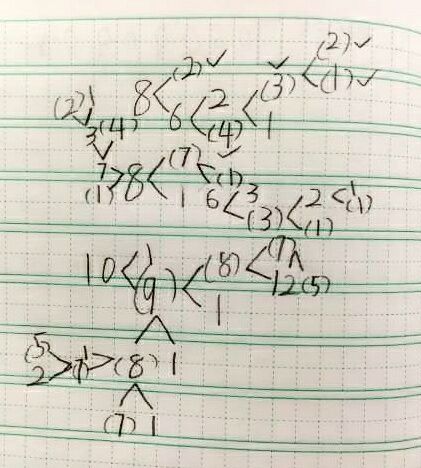 8 < (2) ✓
6 < 2
(4) < (3) ✓ < (2) ✓
1
(1) ✓
(2) 1
3 (4)
7
(1) > 8 < (7) < (1) ✓
1
6 < 3
(3) < 2 < 1
(1)
(1)
10 < 1
(9) < (8) < (7)
1
12(5)
(5)
2 > > (8) 1
(7) 1